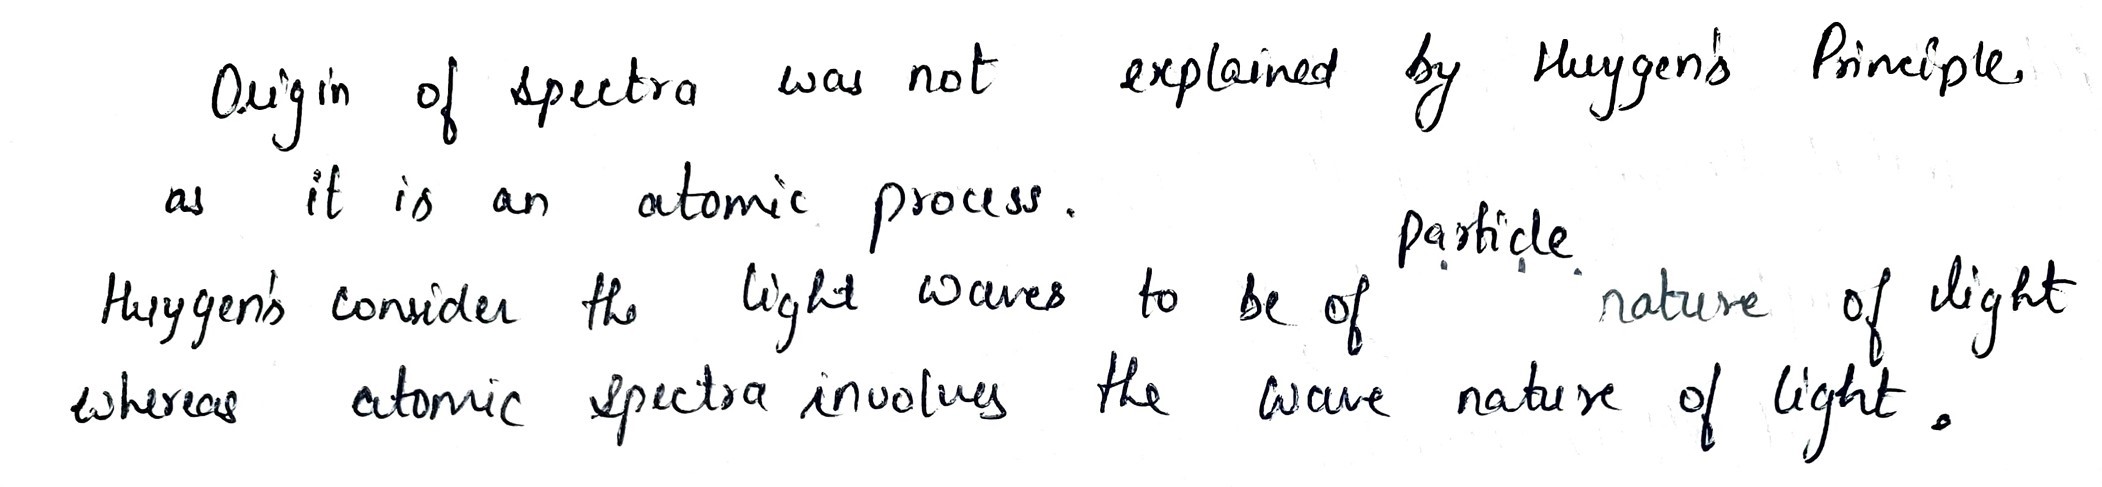 Origin of spectra was not explained by Huygen's Principle
as it is an atomic process.
Huygen's consider the light waves to be of particle nature of light
whereas atomic spectra involves the wave nature of light.